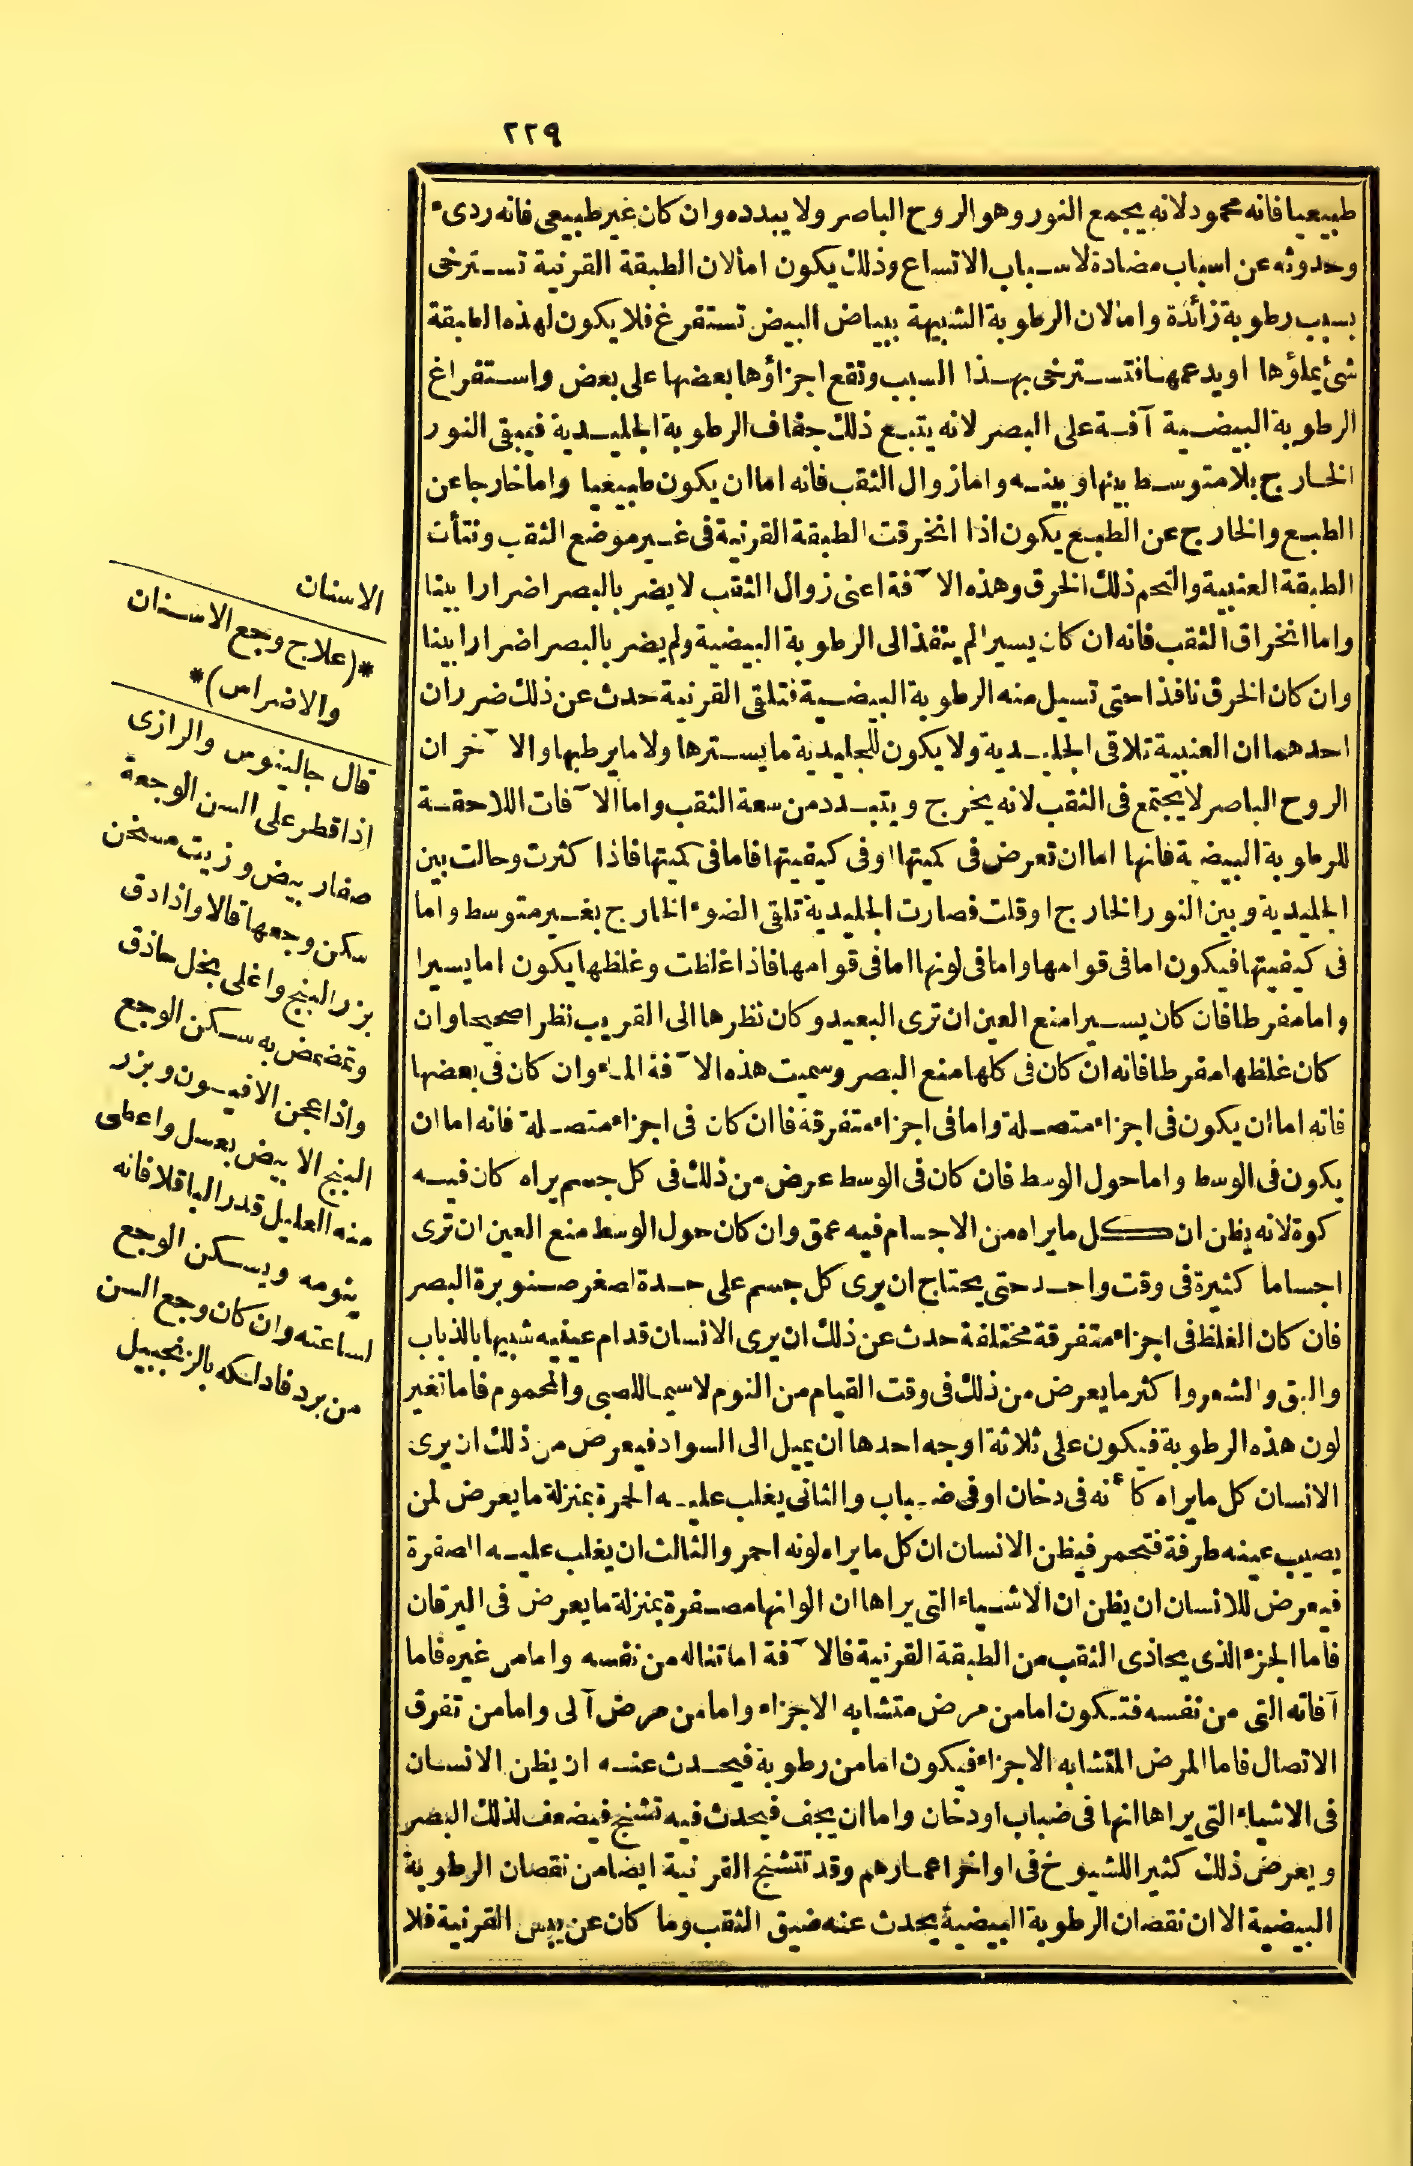 ٢٢٩
طبيعيا فانه محمود لانه يجمع النور وهو الروح الباصر ولا يبدده وان كان غير طبيعى فانه ردىء
وحدوثه عن اسباب مضادة لاسباب الاتساع وذلك يكون اما لان الطبقة القرنية تسترخى
بسبب رطوبة زائدة واما لان الرطوبة الشبيهة ببياض البيض تستفرغ فلا يكون لهذه الطبقة
شئ يملؤها او يدعمها فتسترخى بهذا السبب وتقع اجزاؤها بعضها على بعض واستفراغ
الرطوبة البيضية آفة على البصر لانه يتبع ذلك جفاف الرطوبة الجليدية فيبقى النور
الخارج بلا متوسط بينها وبينه واما زوال الثقب فانه اما ان يكون طبيعيا واما خارجا عن
الطبع والخارج عن الطبع يكون اذا انخرقت الطبقة القرنية فى غير موضع الثقب ونتأت
الطبقة العنبية والتحم ذلك الخرق وهذه الآفة اعنى زوال الثقب لا يضر بالبصر اضرارا بينا
واما انخراق الثقب فانه ان كان يسيرا لم ينفذ الى الرطوبة البيضية ولم يضر بالبصر اضرارا بينا
وان كان الخرق نافذا حتى تسيل منه الرطوبة البيضية فتلقى القرنية حدث عن ذلك ضرران
احدهما ان العنبية تلاقى الجليدية ولا يكون للجليدية ما يسترها ولا ما يرطبها والآخر ان
الروح الباصر لا يجتمع فى الثقب لانه يخرج ويتبدد من سعة الثقب واما الآفات اللاحقة
للرطوبة البيضية فانها اما ان تعرض فى كميتها او فى كيفيتها فاما فى كميتها فاذا كثرت وحالت بين
الجليدية وبين النور الخارج او قلت فصارت الجليدية تلقى الضوء الخارج بغير متوسط واما
فى كيفيتها فيكون اما فى قوامها واما فى لونها اما فى قوامها فاذا غلظت وغلظها يكون اما يسيرا
واما مفرطا فان كان يسيرا منع العين ان ترى البعيد وكان نظرها الى القريب نظرا صحيحا وان
كان غلظها مفرطا فانه ان كان فى كلها منع البصر وسميت هذه الآفة الماء وان كان فى بعضها
فانه اما ان يكون فى اجزاء متصلة واما فى اجزاء متفرقة فاان كان فى اجزاء متصلة فانه اما ان
يكون فى الوسط واما حول الوسط فان كان فى الوسط عرض من ذلك فى كل جسم يراه كان فيه
كوة لانه يظن ان كل ما يراه من الاجسام فيه عمق وان كان حول الوسط منع العين ان ترى
اجساما كثيرة فى وقت واحد حتى يحتاج ان يرى كل جسم على حدة اصغر صنوبرة البصر
فان كان الغلظ فى اجزاء متفرقة مختلفة حدث عن ذلك ان يرى الانسان قدام عينيه شبيها بالذباب
والبق والشعر واكثر ما يعرض من ذلك فى وقت القيام من النوم لاسيما للصبى والمحموم فاما تغير
لون هذه الرطوبة فيكون على ثلاثة اوجه احدها ان يميل الى السواد فيعرض من ذلك ان يرى
الانسان كل ما يراه كأنه فى دخان او فى ضباب والثانى يغلب عليه الحمرة بمنزلة ما يعرض لمن
يصيب عينه طرفة فتحمر فيظن الانسان ان كل ما يراه لونه احمر والثالث ان يغلب عليه الصفرة
فيعرض للانسان ان يظن ان الاشياء التى يراها ان الوانها مصفرة بمنزلة ما يعرض فى اليرقان
فاما الجزء الذى يحاذى الثقب من الطبقة القرنية فالآفة اما تناله من نفسه واما من غيره فاما
آفاته التى من نفسه فتكون اما من مرض متشابه الاجزاء واما من مرض آلى واما من تفرق
الاتصال فاما المرض المتشابه الاجزاء فيكون اما من رطوبة فيحدث عنه ان يظن الانسان
فى الاشياء التى يراها انها فى ضباب او دخان واما ان يجف فيحدث فيه تشنج فيضعف لذلك البصر
ويعرض ذلك كثيرا للشيوخ فى اواخر اعمارهم وقد تتشنج القرنية ايضا من نقصان الرطوبة
البيضية الا ان نقصان الرطوبة البيضية يحدث عنه ضيق الثقب وما كان عن يبس القرنية فلا
الاسنان
*(علاج وجع الاسنان
والاضراس)*
قال جالينوس والرازى
اذا قطر على السن الوجعة
صفار بيض وزيت مسخن
سكن وجعها قالا واذا دق
بزر البنج واغلى بخل حاذق
وتمضمض به سكن الوجع
واذا عجن الافيون وبزر
البنج الابيض بعسل واعطى
منه العليل قدر الباقلا فانه
ينومه ويسكن الوجع
لساعته وان كان وجع السن
من برد فادلكه بالزنجبيل